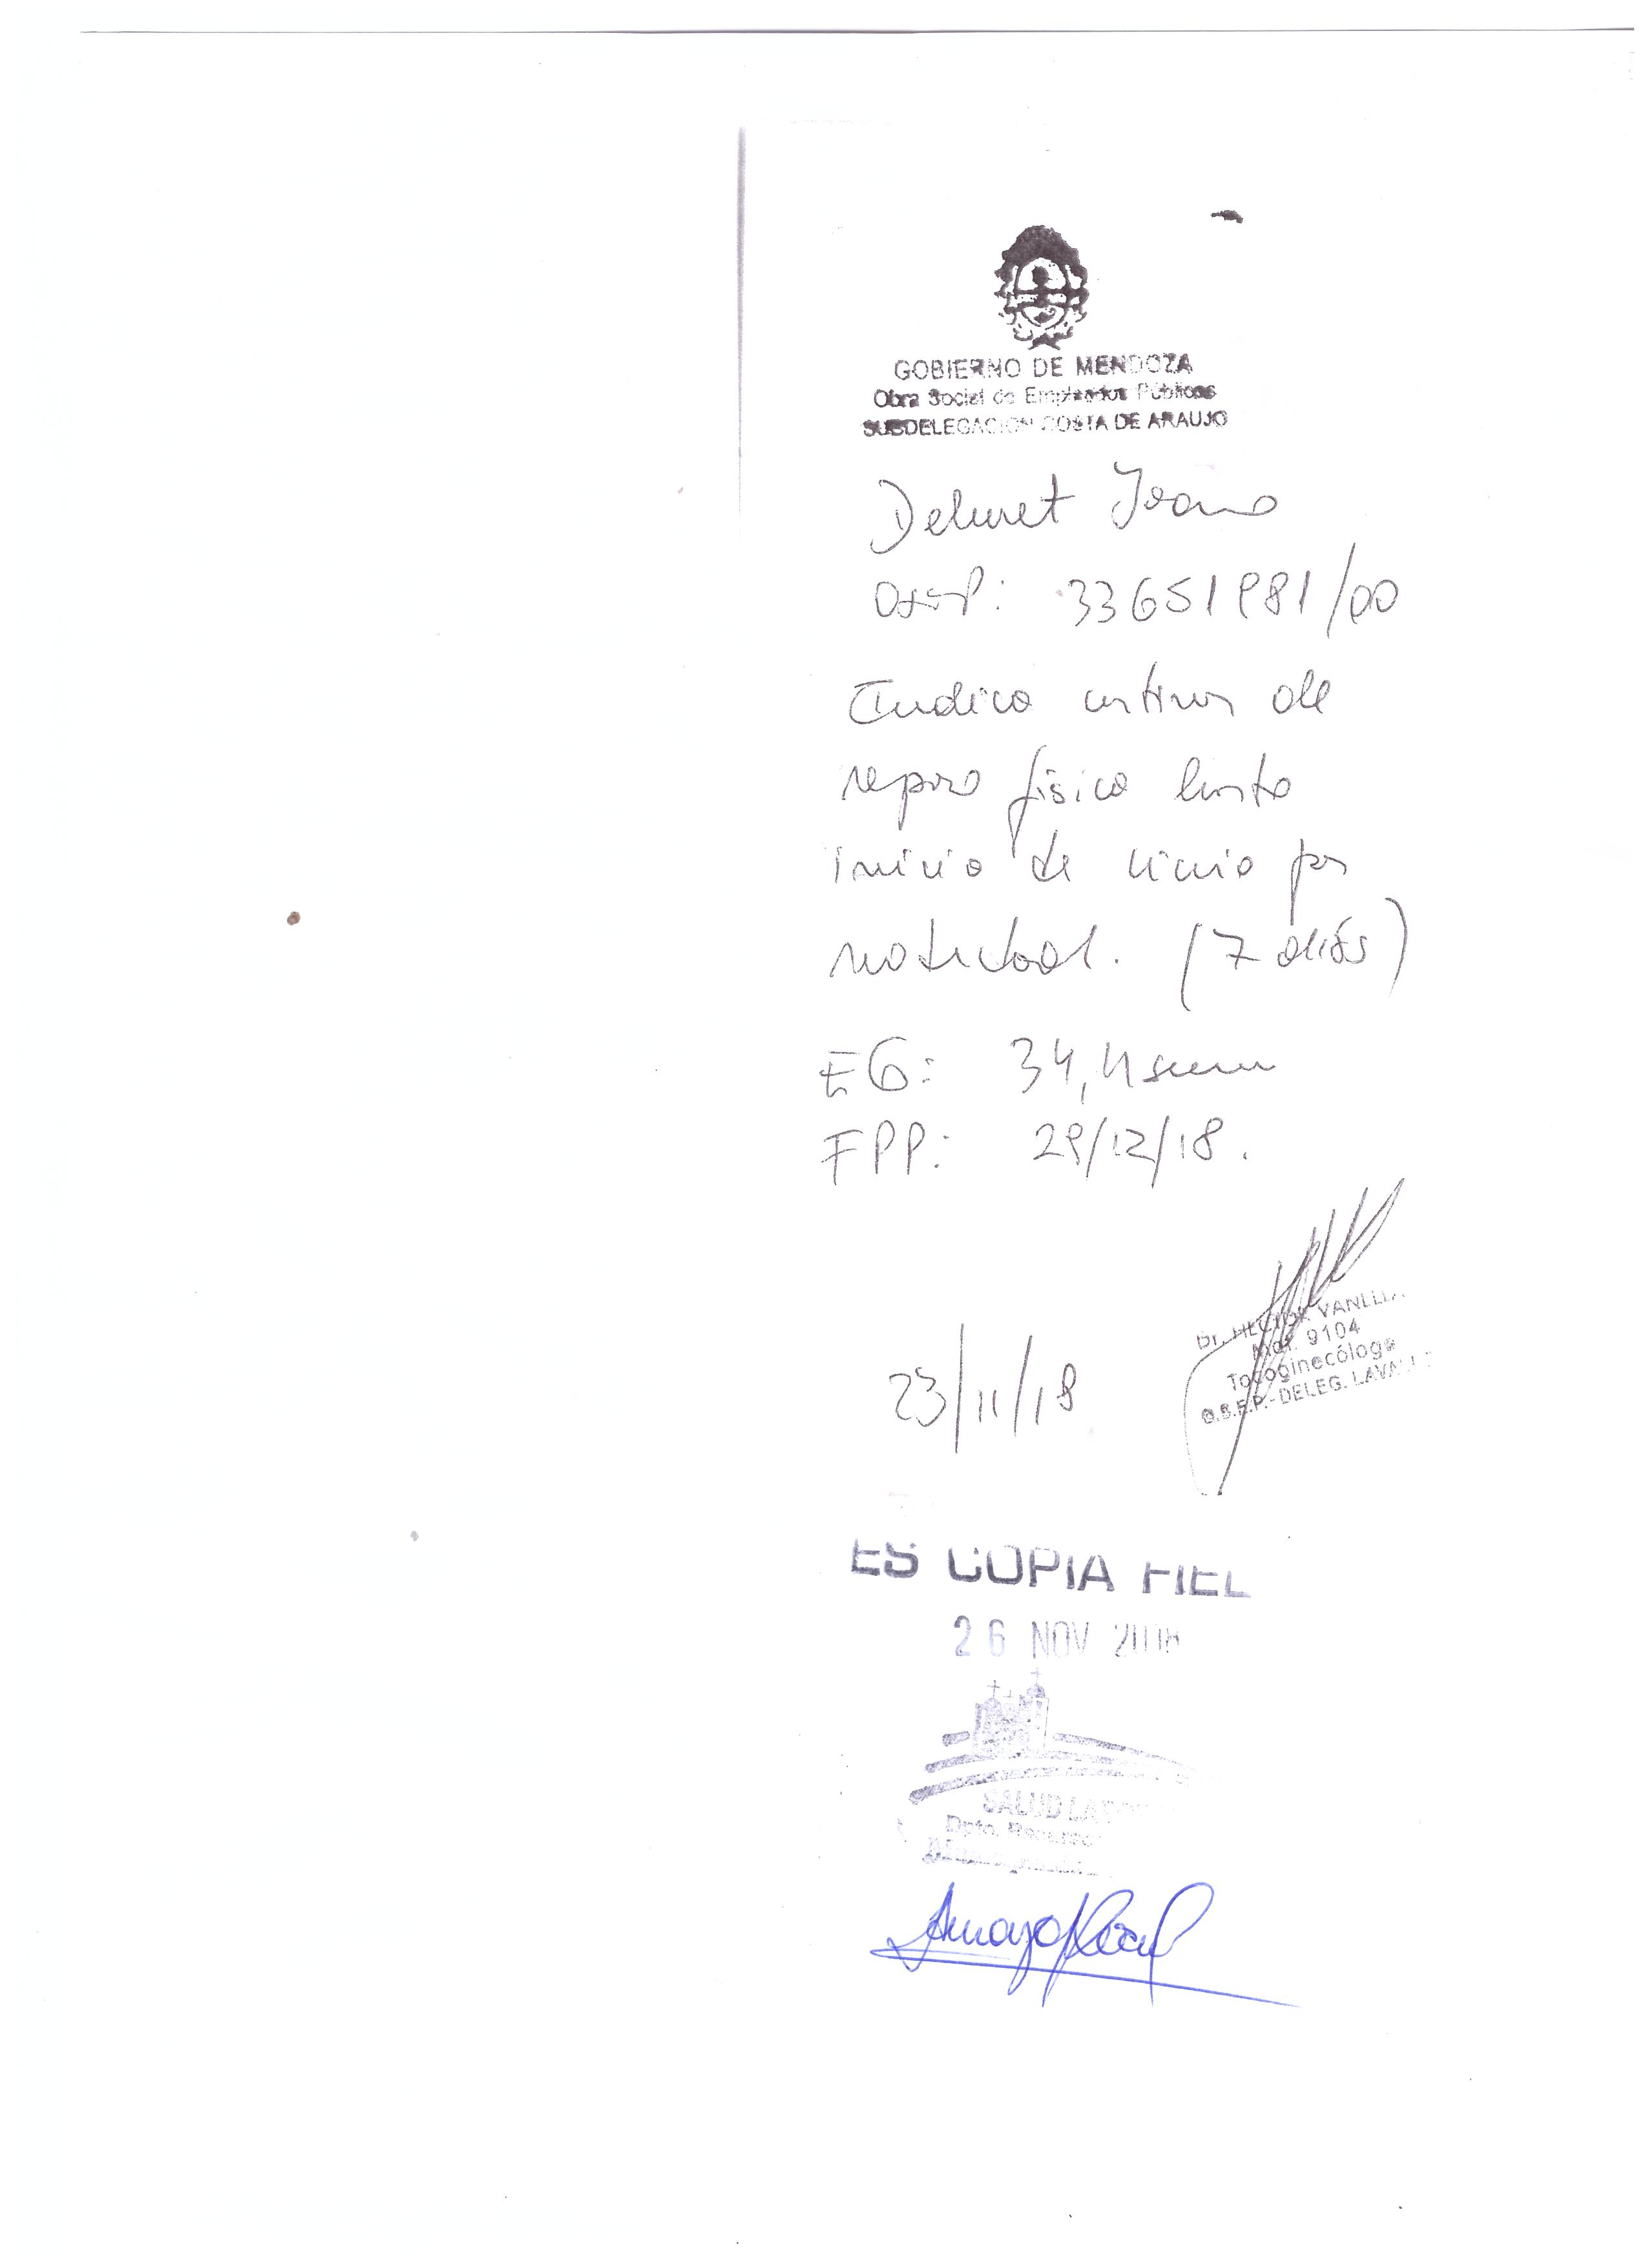 GOBIERNO DE MENDOZA
Obra Social de Empleados Públicos
SUBDELEGACION COSTA DE ARAUJO
Delmet
OSEP: 33651981/00
Indico continuar de
reposo físico hasta
inicio de licencia por
maternidad. (7 días)
EG: 34,4 sem
FPP: 29/12/18.
Dr. HECTOR
Mat. 9104
Tocoginecólogo
O.S.E.P.- DELEG. LAVALLE
23/11/18
ES COPIA FIEL
26 NOV 2018
SALUD
Dpto.